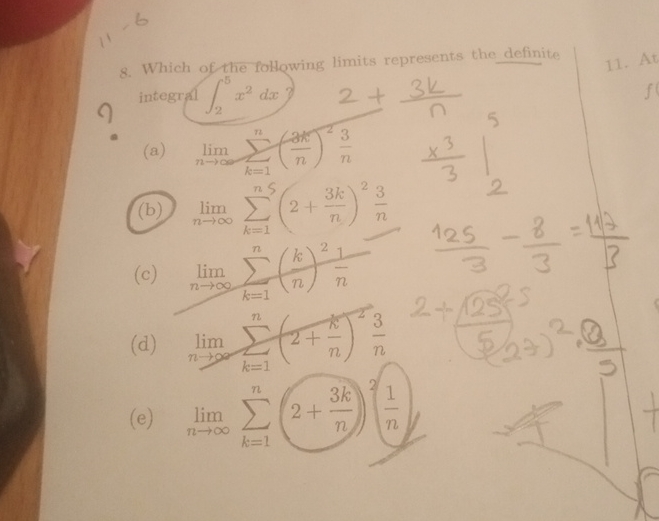 11 - 6
8. Which of the following limits represents the definite
integral ∫₂⁵ x² dx ?
?
2 + 3k/n
(a) lim n→∞ ∑ k=1 n (3k/n)² 3/n
x³/3 | 5 2
(b) lim n→∞ ∑ k=1 n (2 + 3k/n)² 3/n
5
125/3 − 8/3 = 117/3
(c) lim n→∞ ∑ k=1 n (k/n)² 1/n
(d) lim n→∞ ∑ k=1 n (2 + k/n)² 3/n
2 +
(e) lim n→∞ ∑ k=1 n (2 + 3k/n)² 1/n
11. At
f(